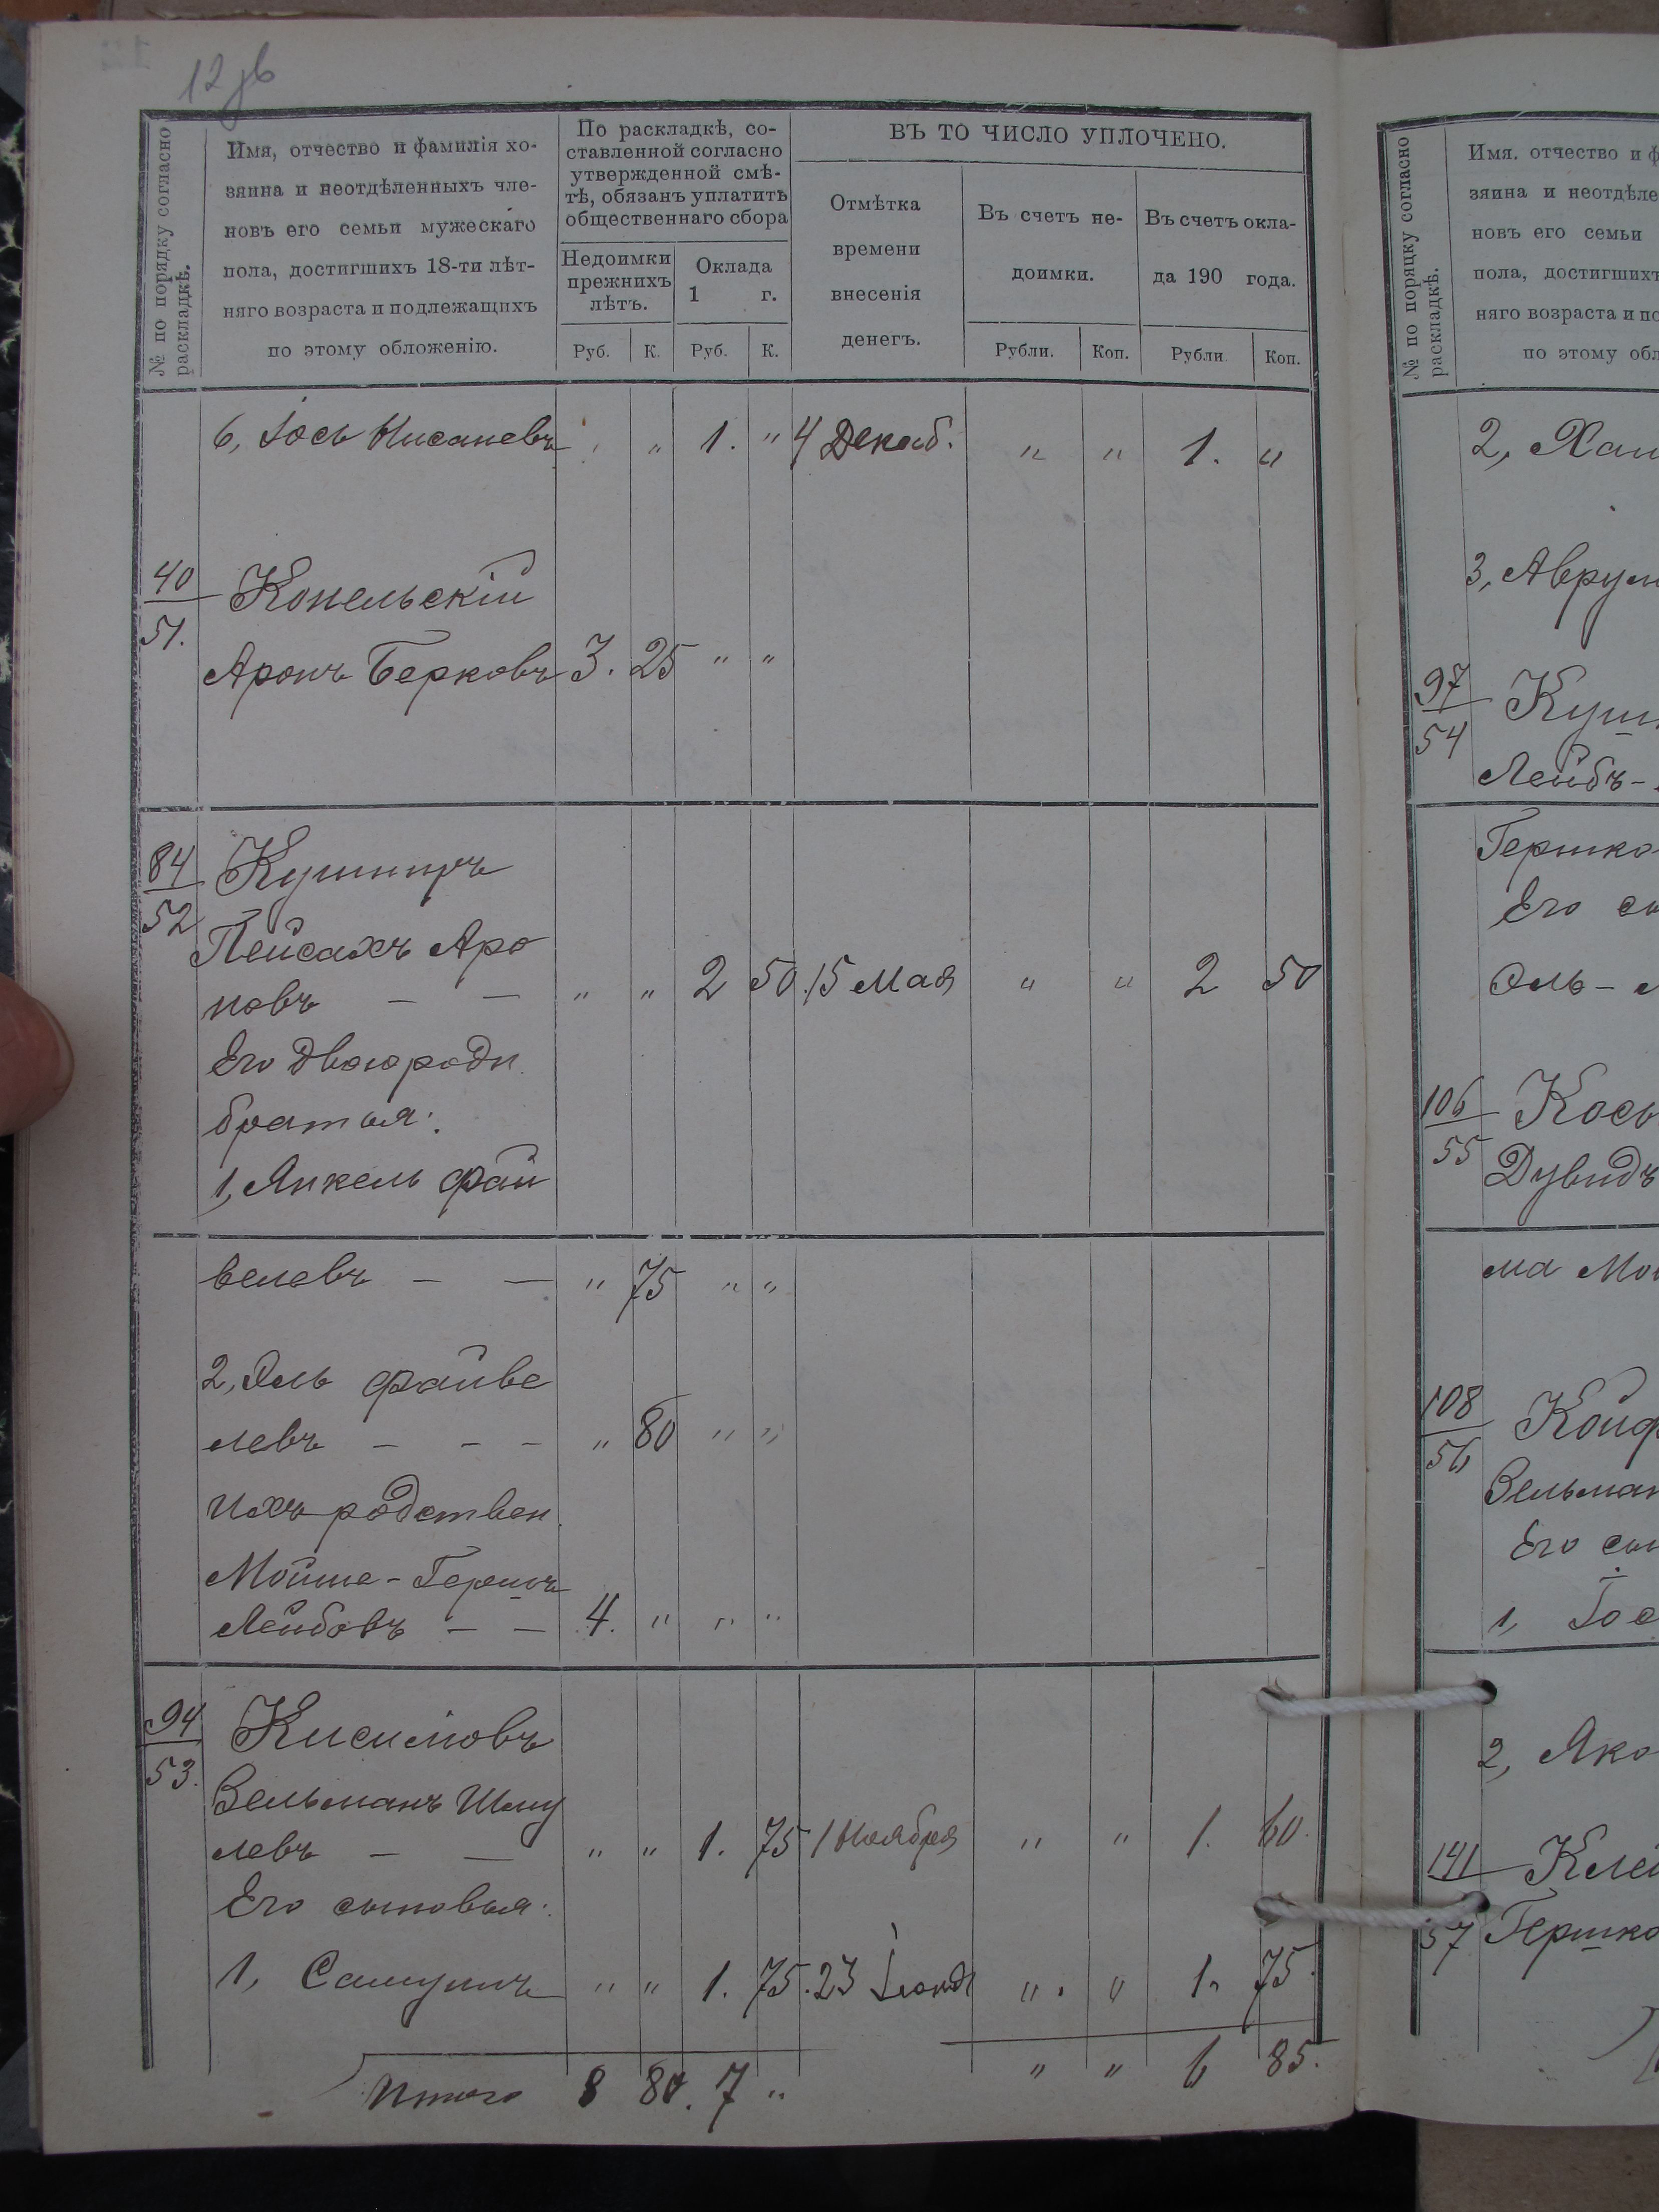 12 зв
№ по порядку согласно
раскладкѣ.
Имя, отчество и фамилія хо-
зяина и неотдѣленныхъ чле-
новъ его семьи мужескаго
пола, достигшихъ 18-ти лѣт-
няго возраста и подлежащихъ
по этому обложенію.
По раскладкѣ, со-
ставленной согласно
утвержденной смѣ-
тѣ, обязанъ уплатить
общественнаго сбора
Недоимки
прежнихъ
лѣтъ.
Оклада
1 г.
Руб. К. Руб. К.
ВЪ ТО ЧИСЛО УПЛОЧЕНО.
Отмѣтка
времени
внесенія
денегъ.
Въ счетъ не-
доимки.
Въ счетъ окла-
да 190 года.
Рубли. Коп. Рубли. Коп.
6, Іось Нисаневъ " " 1. " 4 Декаб. " " 1. "
40
51.
Конельскій
Аронъ Берковъ 3. 25 " "
84
52
Кушниръ
Пейсахъ Аро
новъ — — " " 2 50. 15 Мая " " 2 50
Его двоюродн.
братья:
1, Янкель Фай
велевъ — — " 75 " "
2, Эль Файве
левъ — — — " 80 " "
Ихъ родствен.
Мойше-Гершъ
Лейбовъ — — 4. " " "
94
53.
Кисилювъ
Зельманъ Шму
левъ — — " " 1. 75 1 Ноября " " 1. 60.
Его сыновья:
1, Самуилъ " " 1. 75. 23 " " 1. 75.
Итого 8 80. 7 " " " 6 85.
№ по порядку согласно
раскладкѣ.
Имя. отчество и ф
зяина и неотдѣле
новъ его семьи
пола, достигшихъ
няго возраста и по
по этому обл
2, Хаи
3, Аврум
97
54
Куш
Лейбъ-
Гершко
Его сы
Эль-
106
55
Кось
Дувидъ
ма Мо
108
56
Койф
Зельман
Его сы
1, Іос
2, Яко
141
57
Клей
Гершко